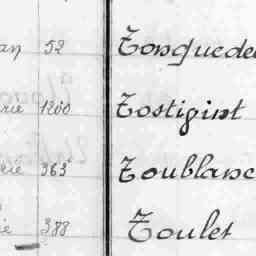 an 52 Tonquede
rie 1200 Tostigint
rie 363 Toublanc
ie 388 Toulet